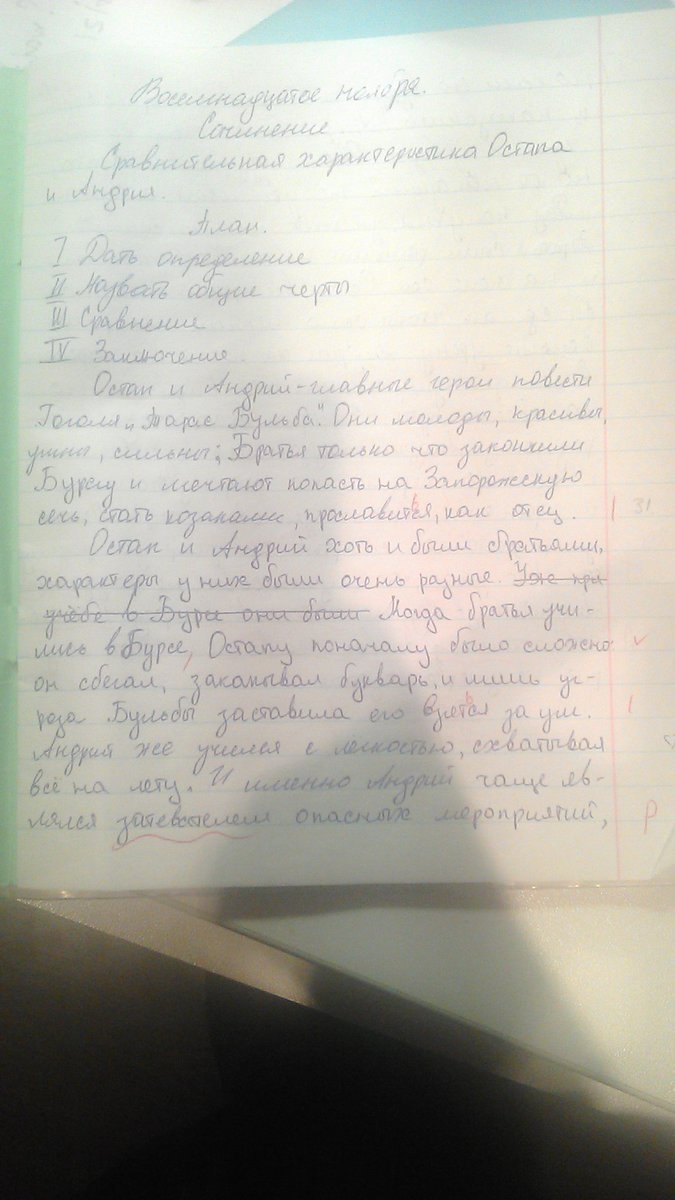 Восемнадцатое ноября.
Сочинение
Сравнительная характеристика Остапа
и Андрия.
План.
I Дать определение
II Назвать общие черты
III Сравнение
IV Заключение
Остап и Андрий-главные герои повести
Гоголя „Тарас Бульба". Они молоды, красивы,
умны, сильны; Братья только что закончили
Бурсу и мечтают попасть на Запорожскую
сечь, стать козаками, прославиться, как отец.
Остап и Андрий хоть и были братьями,
характеры у них были очень разные. Уже при
учёбе в Бурсе они были Когда братья учи-
лись в Бурсе, Остапу поначалу было сложно
он сбегал, закапывал букварь, и лишь уг-
роза Бульбы заставила его взяться за ум.
Андрий же учился с легкостью, схватывая
всё на лету. И именно Андрий чаще яв-
лялся затевателем опасных мероприятий,